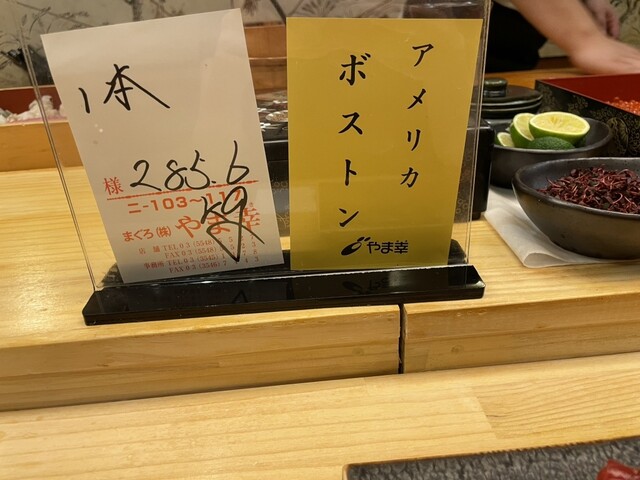 1本
様 285.6
kg
ニ-103~
まぐろ(株) やま幸
店舗 TEL 03(3248)
FAX 03(3248)
事務所 TEL 03(3545)
FAX 03(3546)
アメリカ
ボストン
やま幸